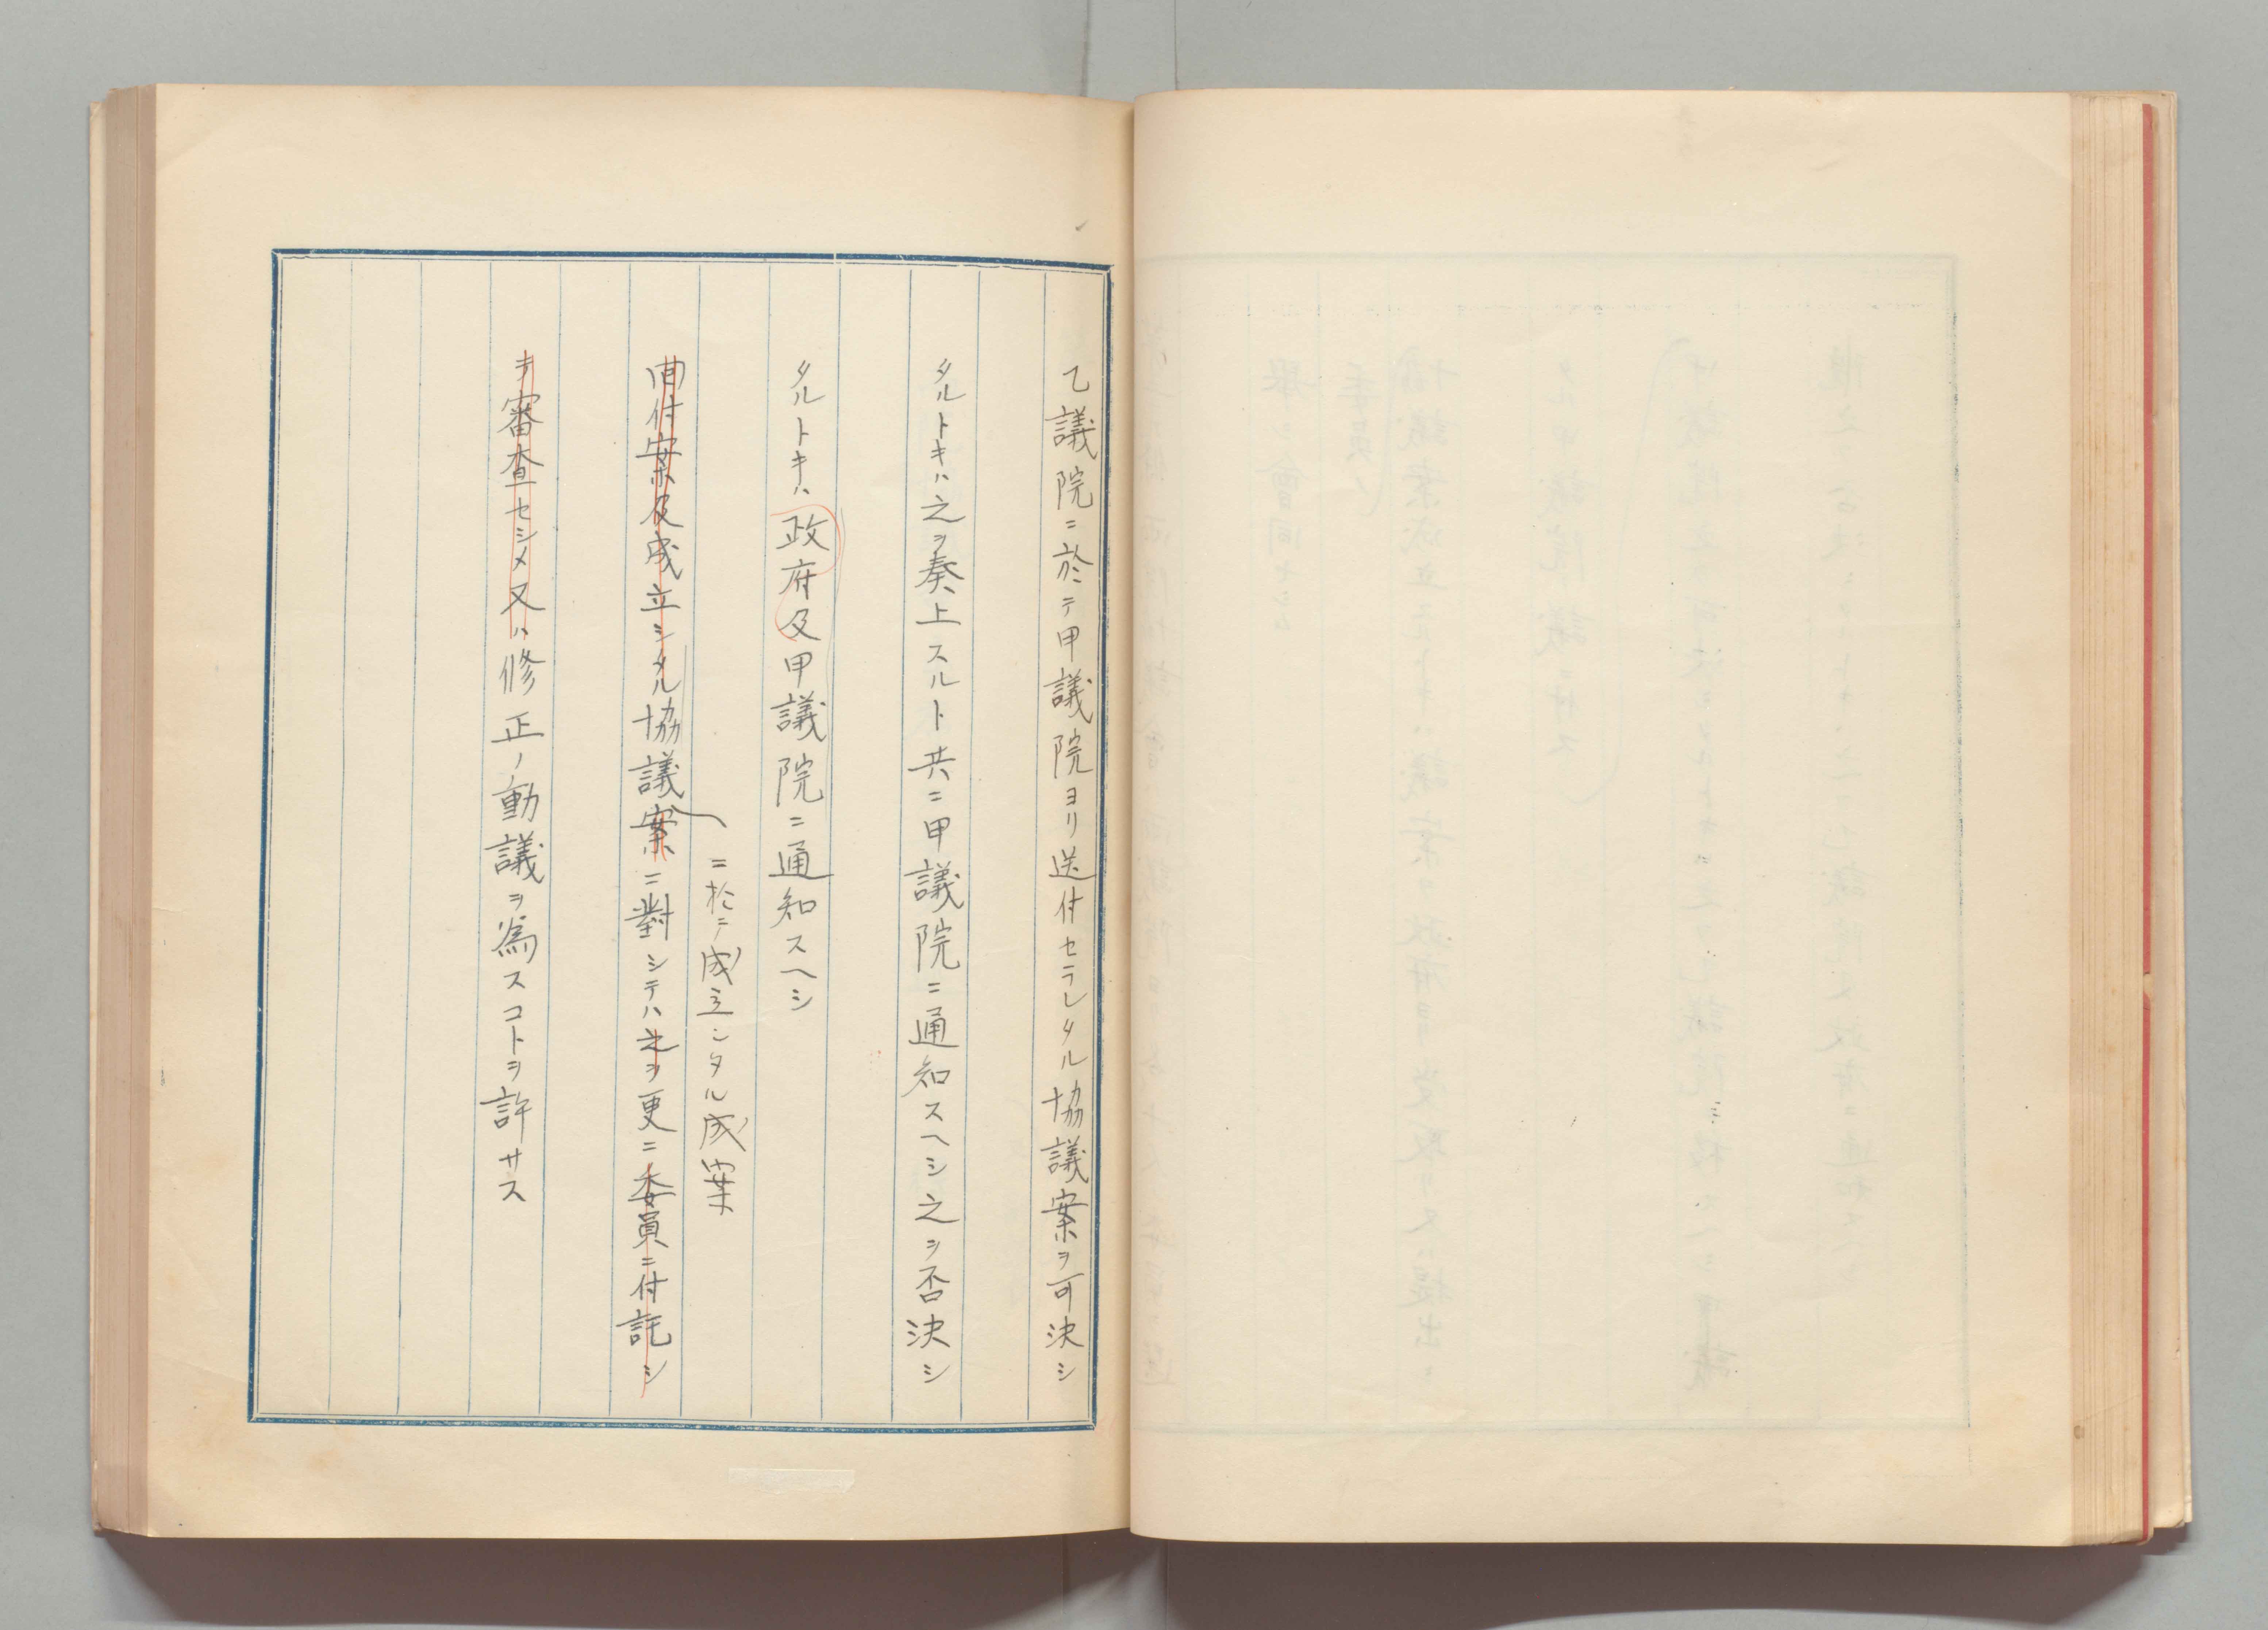 乙議院ニ於テ甲議院ヨリ送付セラレタル協議案ヲ可決シ
タルトキハ之ヲ奏上スルト共ニ甲議院ニ通知スヘシ之ヲ否決シ
タルトキハ政府及甲議院ニ通知スヘシ
ニ於テ成立シタル成案
回付案及成立シタル協議案ニ對シテハ之ヲ更ニ委員ニ付託シ
審査セシメ又ハ修正ノ動議ヲ爲スコトヲ許サス